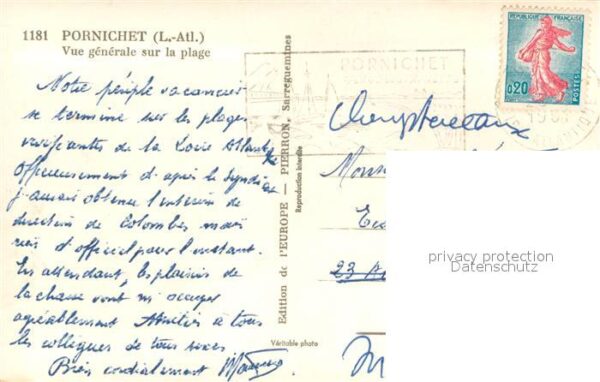 1181 PORNICHET (L.-Atl.)
Vue générale sur la plage
Notre périple vacancier
se termine sur les plages
vivifiantes de la Loire Atlantique
Officieusement d'après le Syndicat
j'aurais obtenu l'intérim de
direction de Colombes mais
rien d'officiel pour l'instant.
En attendant, les plaisirs de
la chasse vont m'occuper
agréablement Amitiés à tous
les collègues de tous
Bien cordialement
Edition de l'EUROPE — PIERRON, Sarreguemines
Reproduction interdite
Véritable photo
PORNICHET
REPUBLIQUE FRANÇAISE
0,20
POSTES
23
privacy protection
Datenschutz